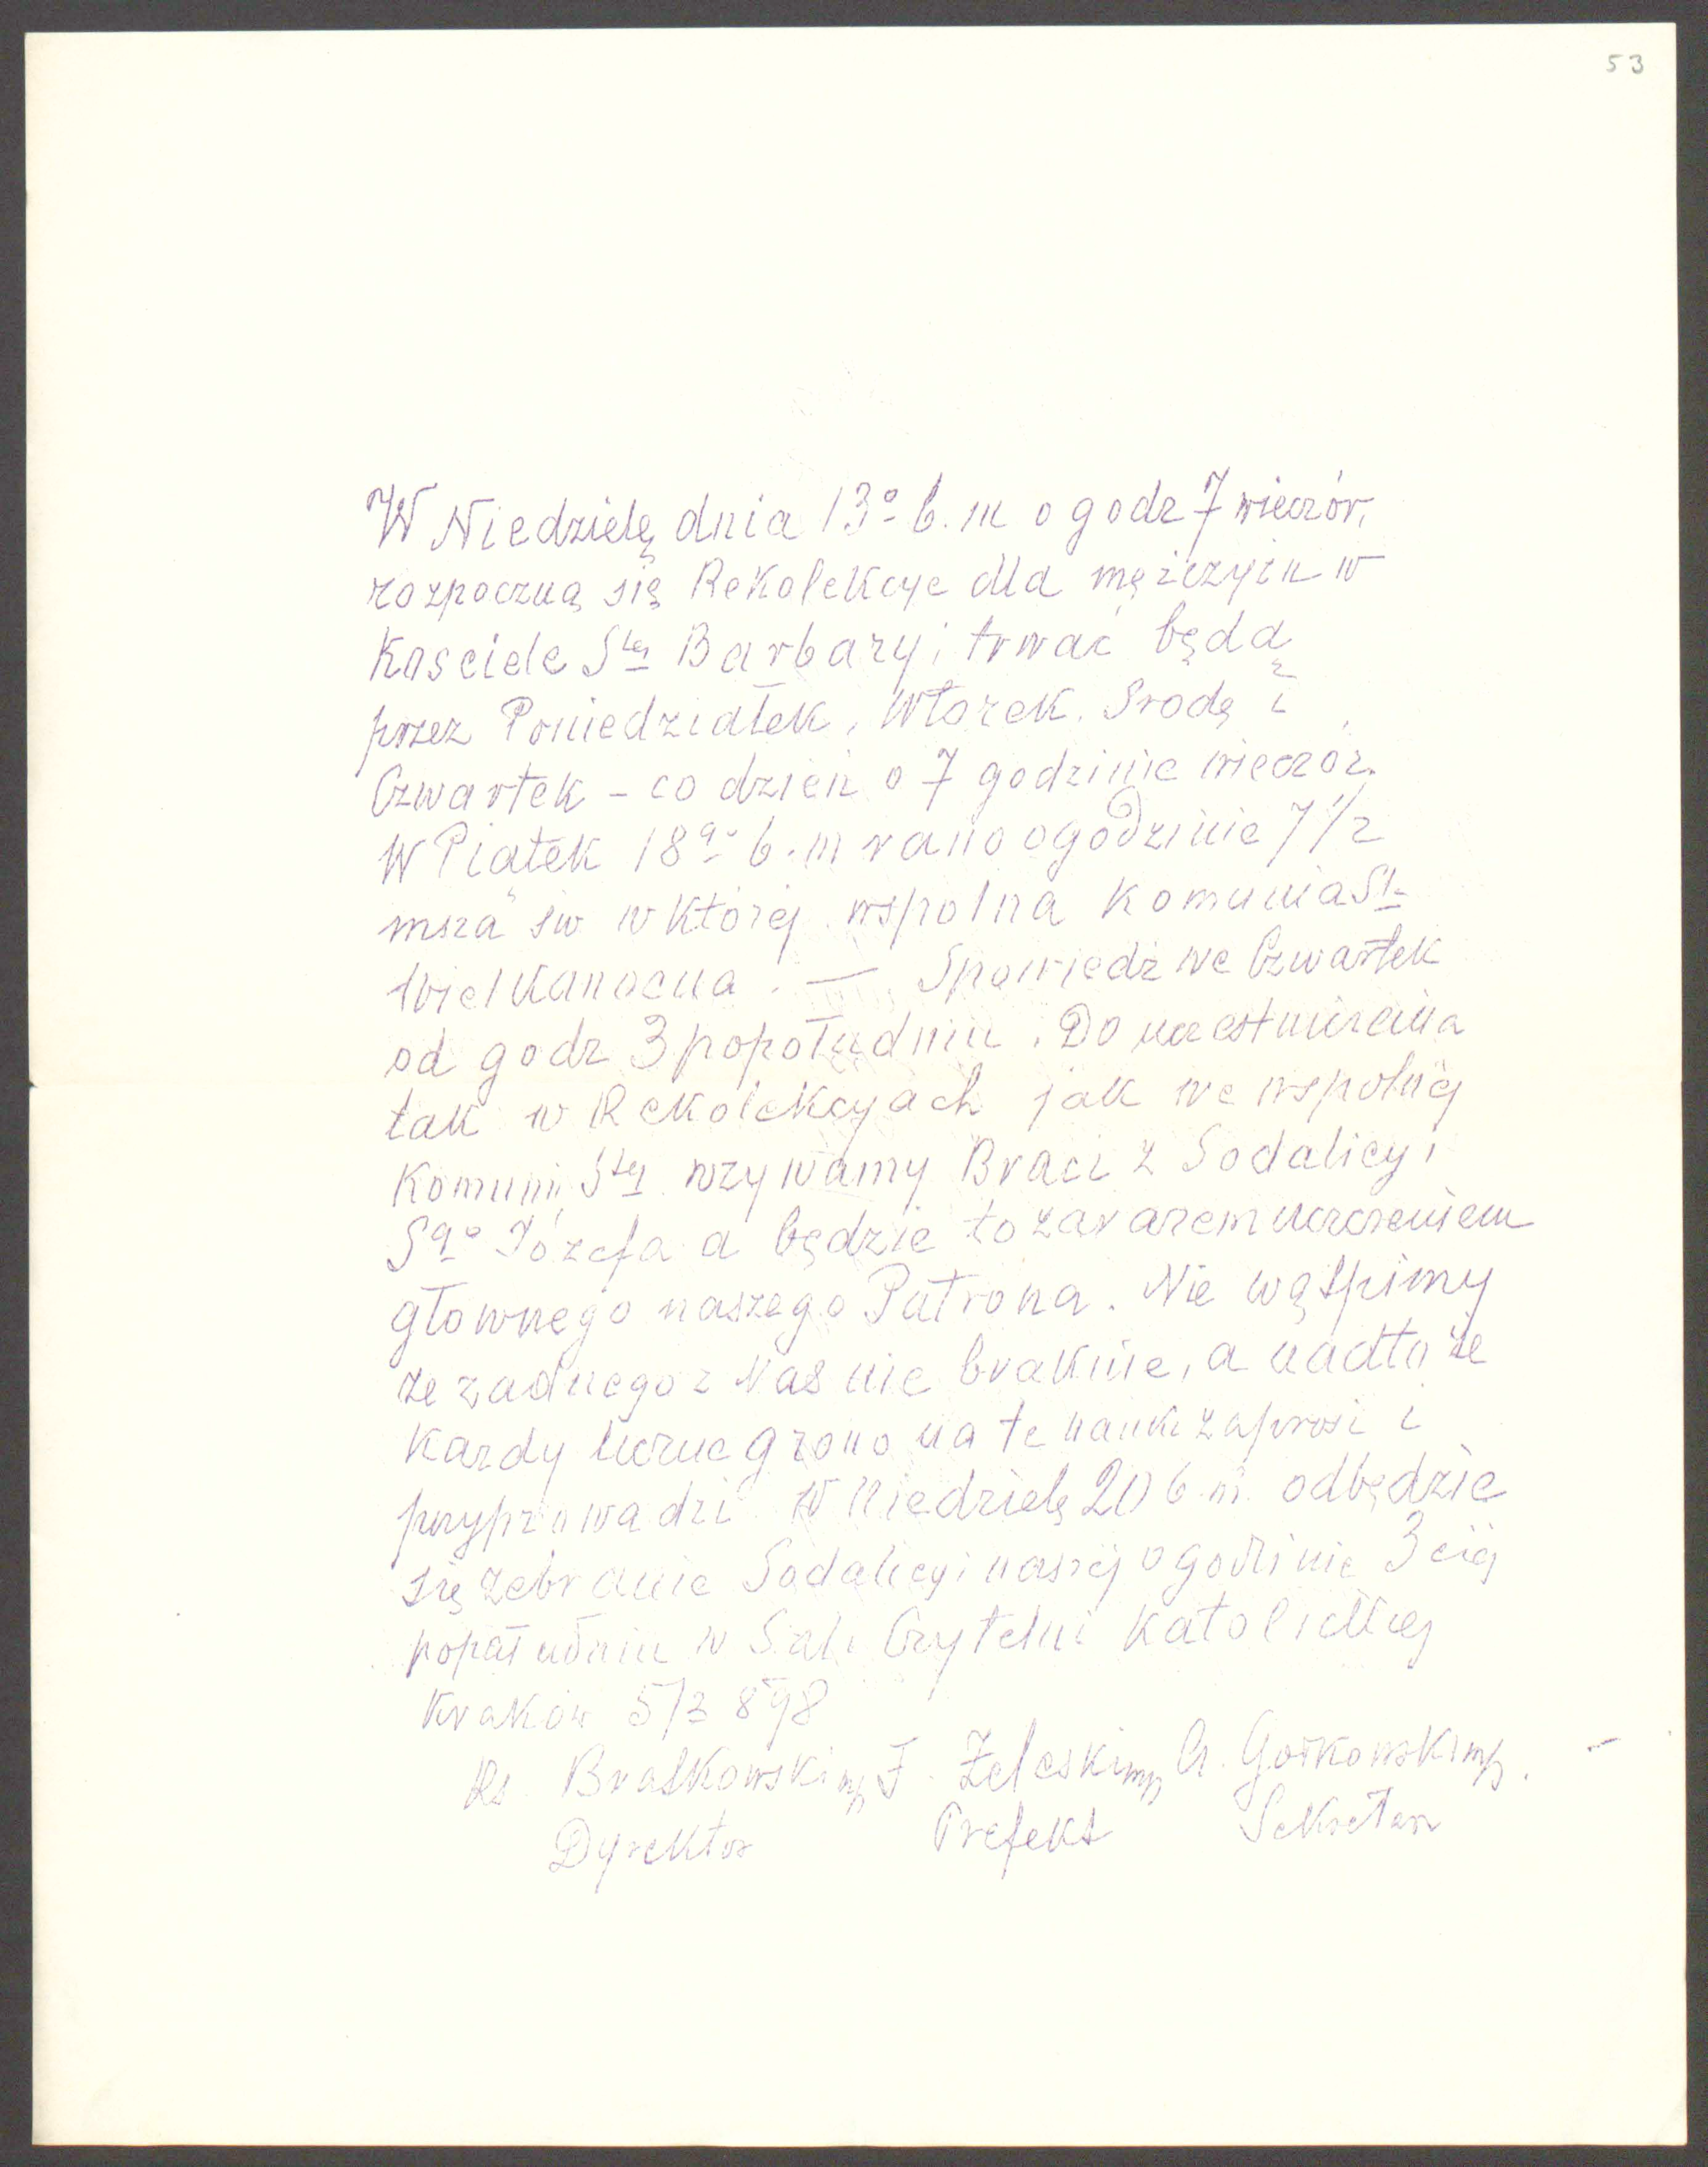 53
W Niedzielę dnia 13º b. m o godz 7 wieczór.
rozpoczną się Rekolekcye dla mężczyzn w
Kosciele Stej Barbary i trwać będą
przez Poniedziałek, Wtorek. Srodę i
Czwartek – co dzień o 7 godzinie wieczór.
W Piątek 18go b. m rano o godzinie 7 1/2
msza św w której wspolna Komunia Sta
Wielkanocna. — Spowiedź we Czwartek
od godz 3 popołudniu. Do uczestniczenia
tak w Rekolekcyach jak we wspolnej
Komunii Stej wzywamy Braci z Sodalicyi
Sgo Józefa a będzie to zarazem uczczeniem
głownego naszego Patrona. Nie wątpimy
ze zadnego z Nas nie braknie, a nadto że
Kazdy liczne grono na te nauki zaprosi i
przyprowadzi W Niedzielę 20 b m. odbędzie
się zebranie Sodalicyi naszej o godzinie 3 ciej
popołudniu w Sali Czytelni Katolickiej
Kraków 5/3 898
Ks. Bratkowski mp F. Zeleski mp A. Gorkowski mp.
Dyrektor Prefekt Sekretarz